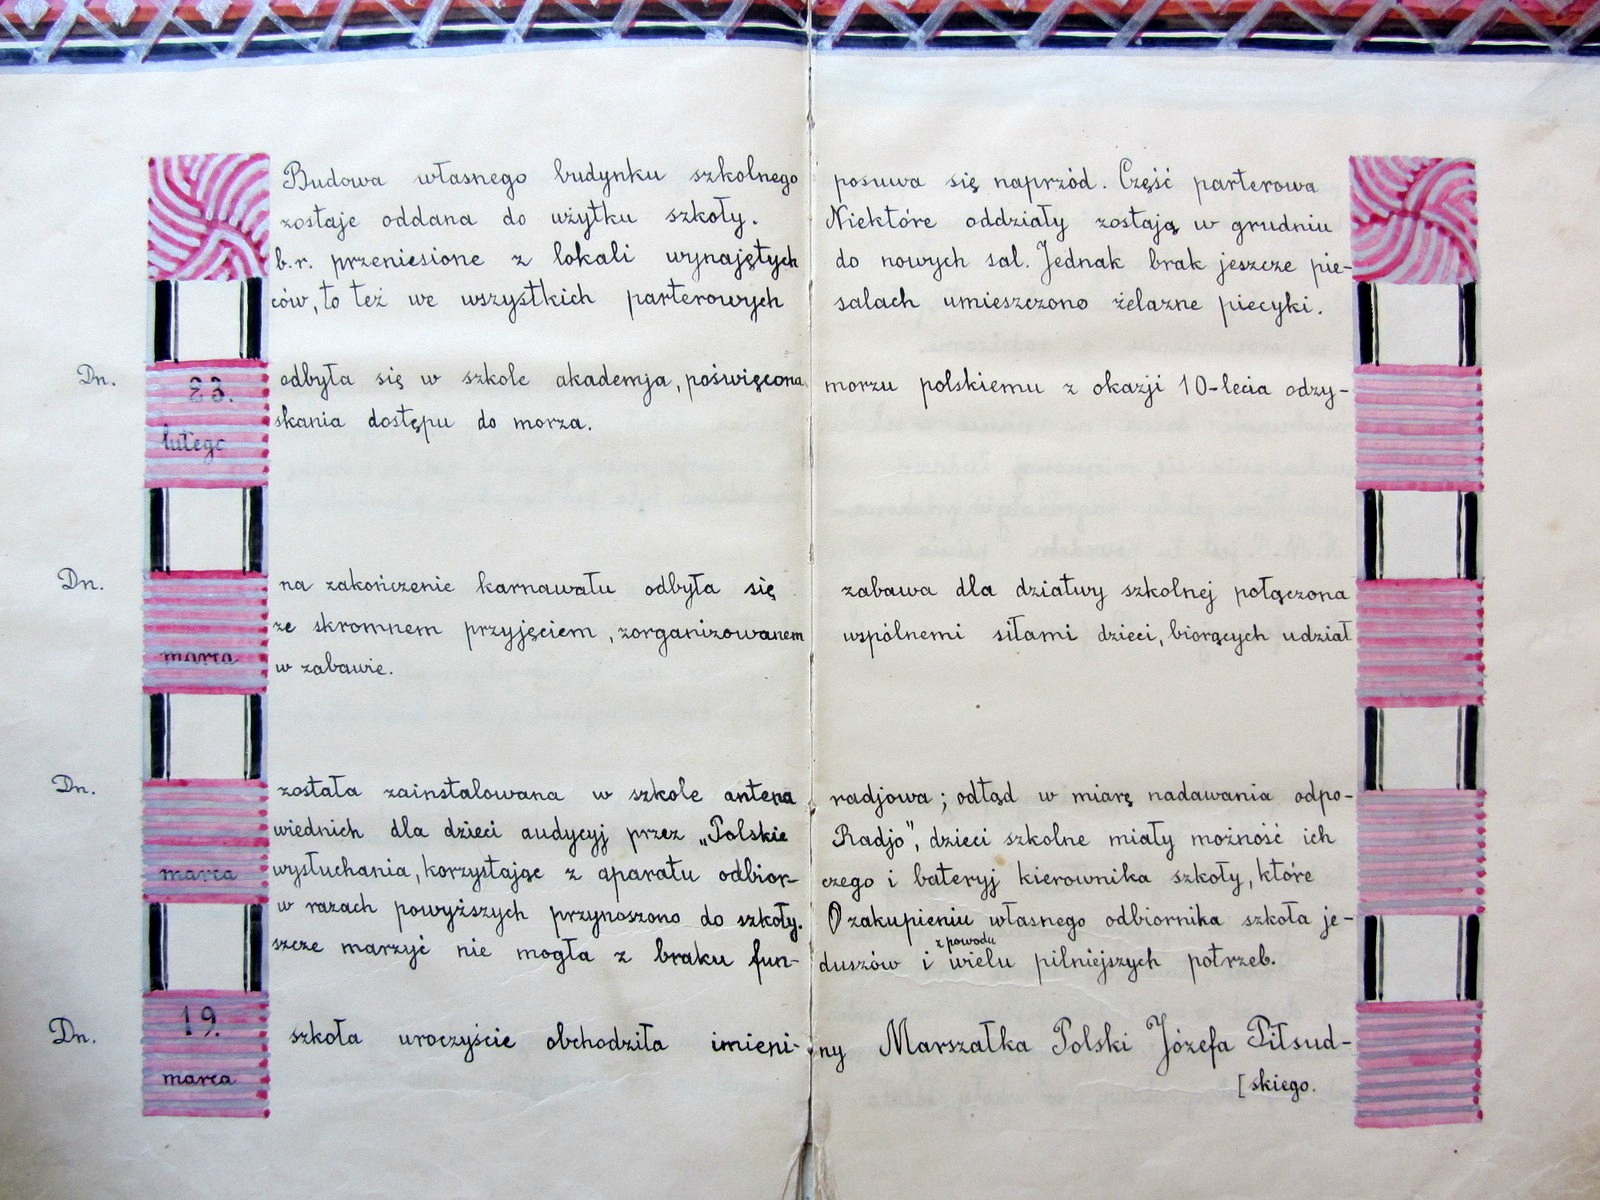 Budowa własnego budynku szkolnego posuwa się naprzód. Część parterowa
zostaje oddana do użytku szkoły. Niektóre oddziały zostają w grudniu
b.r. przeniesione z lokali wynajętych do nowych sal. Jednak brak jeszcze pie-
ców, to też we wszystkich parterowych salach umieszczono żelazne piecyki.
Dn. 23. odbyła się w szkole akademja, poświęcona morzu polskiemu z okazji 10-lecia odzy-
lutego skania dostępu do morza.
Dn. na zakończenie karnawału odbyła się zabawa dla dziatwy szkolnej połączona
ze skromnem przyjęciem, zorganizowanem wspólnemi siłami dzieci, biorących udział
marca w zabawie.
Dn. została zainstalowana w szkole antena radjowa; odtąd w miarę nadawania odpo-
wiednich dla dzieci audycyj przez „Polskie Radjo", dzieci szkolne miały możność ich
marca wysłuchania, korzystając z aparatu odbior- czego i bateryj kierownika szkoły, które
w razach powyższych przynoszono do szkoły. O zakupieniu własnego odbiornika szkoła je-
szcze marzyć nie mogła z braku fun- duszów i z powodu wielu pilniejszych potrzeb.
Dn. 19. szkoła uroczyście obchodziła imieni- ny Marszałka Polski Józefa Piłsud-
marca [skiego.